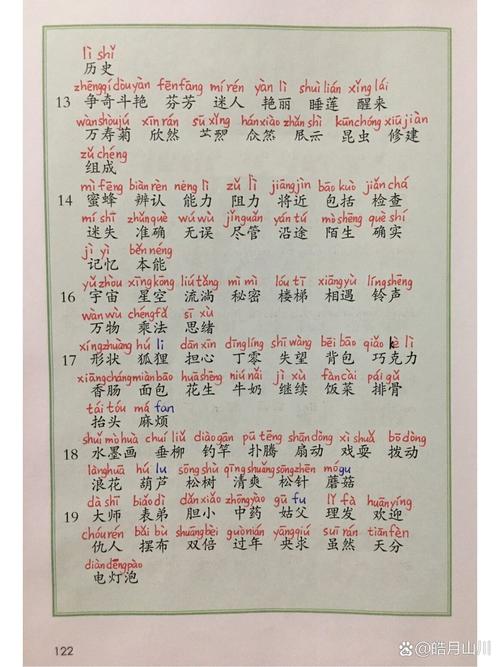 lì shǐ
历史
zhēngqí dòuyàn fēnfāng mí rén yàn lì shuì lián xǐng lái
13 争奇斗艳 芬芳 迷人 艳丽 睡莲 醒来
wànshòujú xīn rán sū xǐng hánxiào zhǎn shì kūnchóng xiū jiàn
万寿菊 欣然 昆虫 修建
zǔ chéng
组成
mì fēng biàn rèn néng lì zǔ lì jiāngjìn bāo kuò jiǎn chá
14 蜜蜂 辨认 能力 阻力 将近 包括 检查
mí shī zhǔnquè wú wù jǐnguǎn yán tú mòshēng què shí
迷失 准确 无误 尽管 沿途 陌生 确实
jì yì běn néng
记忆 本能
yǔ zhòu xīng kōng liú tǎng mì mì lóu tī xiāng yù líng shēng
16 宇宙 星空 流淌 秘密 楼梯 相遇 铃声
wàn wù chéng fǎ sī xù
万物 乘法 思绪
xíng zhuàng hú li dān xīn dīng líng shī wàng bēi bāo qiǎo kè lì
17 形状 狐狸 担心 丁零 失望 背包 巧克力
xiāngcháng miàn bāo huā shēng niú nǎi jì xù fàn cài pái gǔ
香肠 面包 花生 牛奶 继续 饭菜 排骨
tái tóu má fan
抬头 麻烦
shuǐ mò huà chuí liǔ diào gān pū téng shān dòng xì shuǎ bō dòng
18 水墨画 垂柳 钓竿 扑腾 扇动 戏耍 拨动
làng huā hú lu sōng shù qīng shuǎng sōng zhēn mó gu
浪花 葫芦 松树 清爽 松针 蘑菇
dà shī biǎo dì dǎn xiǎo zhōng yào gū fu lǐ fà huān yíng
19 大师 表弟 胆小 中药 姑父 理发 欢迎
chóu rén bǎi bù shuāng bèi guò nián yāng qiú suī rán tiān fèn
仇人 摆布 双倍 过年 央求 虽然 天分
diàn dēng pào
电灯泡
122
皓月山川